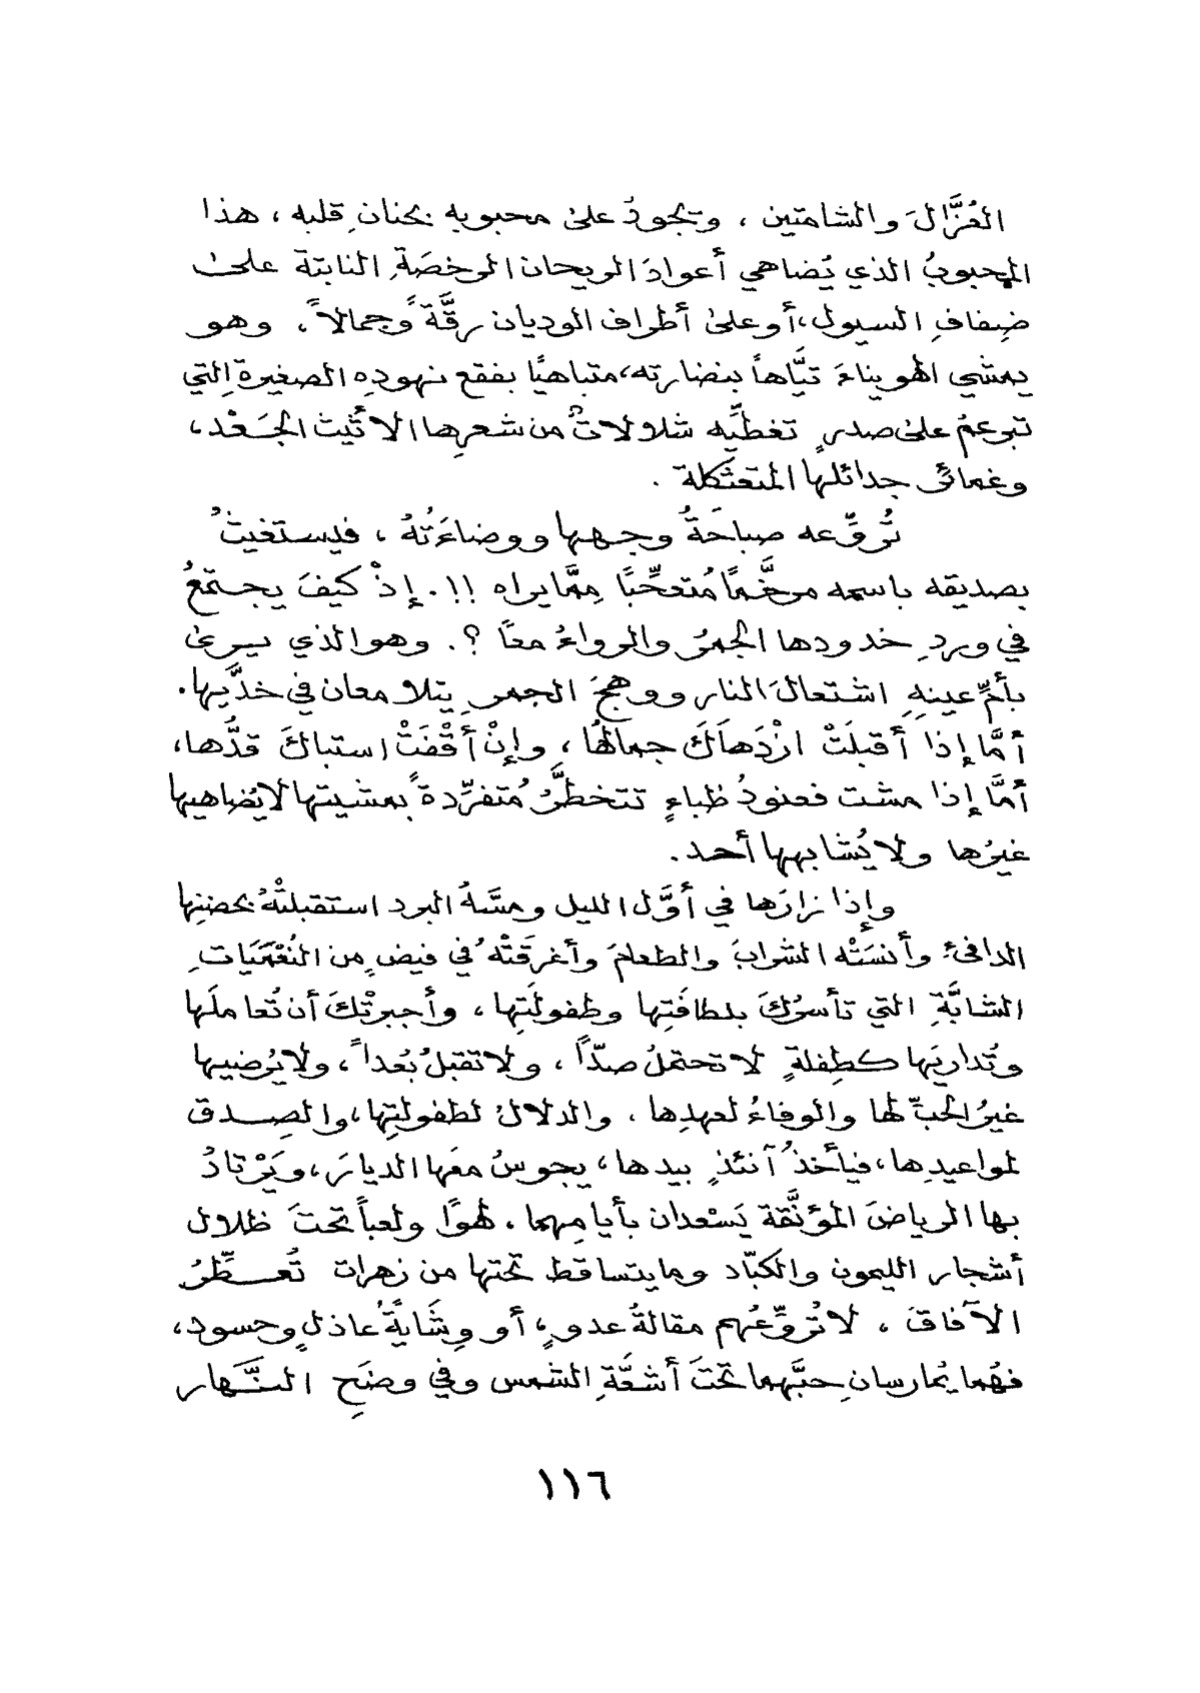 العُزَّالَ والشامتين ، وتجودُ على محبوبه بحنانِ قلبه ، هذا
المحبوبُ الذي يُضاهي أعوادَ الريحان الرخصَةِ النابتة على
ضِفافِ السيول ، أو على أطراف الوديان رقَّةً وجمالاً ، وهو
يمشي الهويناءَ تيَّاهاً بنضارته ، متباهيًا بفقع نهودِهِ الصغيرةِ التي
تبرعمُ على صدرٍ تغطِّيه شلولاتٌ من شعرِها الأثيث الجَعْد ،
وغمائى جدائلها المتعثكلة .
تُروِّعه صباحَةُ وجهها ووضاءَتُهُ ، فيستغيثُ
بصديقه باسمه مرخَّمًا مُتعجِّبًا مِمَّا يراه !! . إذْ كيفَ يجتمعُ
في وردِ خدودها الجمرُ والرواءُ معًا ؟ . وهو الذي يرى
بأمِّ عينِهِ اشتعالَ النار ووهجَ الجمرِ يتلامعان في خدَّيها .
أمَّا إذا أقبلَتْ ازْدَهاكَ جمالُها ، وإنْ أقْفَتْ استباكَ قدُّها ،
أمَّا إذا مشت فعنودُ ظباءٍ تتخطَّرُ مُتفرِّدةً بمشيتها لا يُضاهيها
غيرُها ولا يُشابهها أحد .
وإذا زارَها في أوَّل الليل ومسَّهُ البرد استقبلتْهُ بحضنِها
الدافئِ وأنسَتْه الشرابَ والطعامَ وأغرقَتْهُ في فيضٍ من النُعْمَيَاتِ
الشابَّةِ التي تأسرُكَ بلطافَتِها وطفولَتِها ، وأجبرتْكَ أن تُعاملَها
وتُداريَها كطِفلةٍ لا تحتملُ صدّاً ، ولا تقبلُ بُعداً ، ولا يُرضيها
غيرُ الحبِّ لها والوفاءُ لعهدِها ، والدلالُ لطفولتِها ، والصِدق
لمواعيدِها ، فيأخذُ آنئذٍ بيدها ، يجوسُ معَها الديارَ ، ويَرْتادُ
بها الرياضَ المؤنَّقة يَسْعدان بأيامِهما ، لهوًا ولعباً تحتَ ظلال
أشجار الليمون والكبّاد وما يتساقط تحتها من زهرات تُعطِّرُ
الآفاقَ ، لا تُروِّعُهم مقالةُ عدوٍ ، أو وِشَايَةُ عاذلٍ وحسود ،
فهُما يُمارسانِ حبَّهما تحتَ أشعَّةِ الشمس وفي وضَحِ النَّهار
١١٦